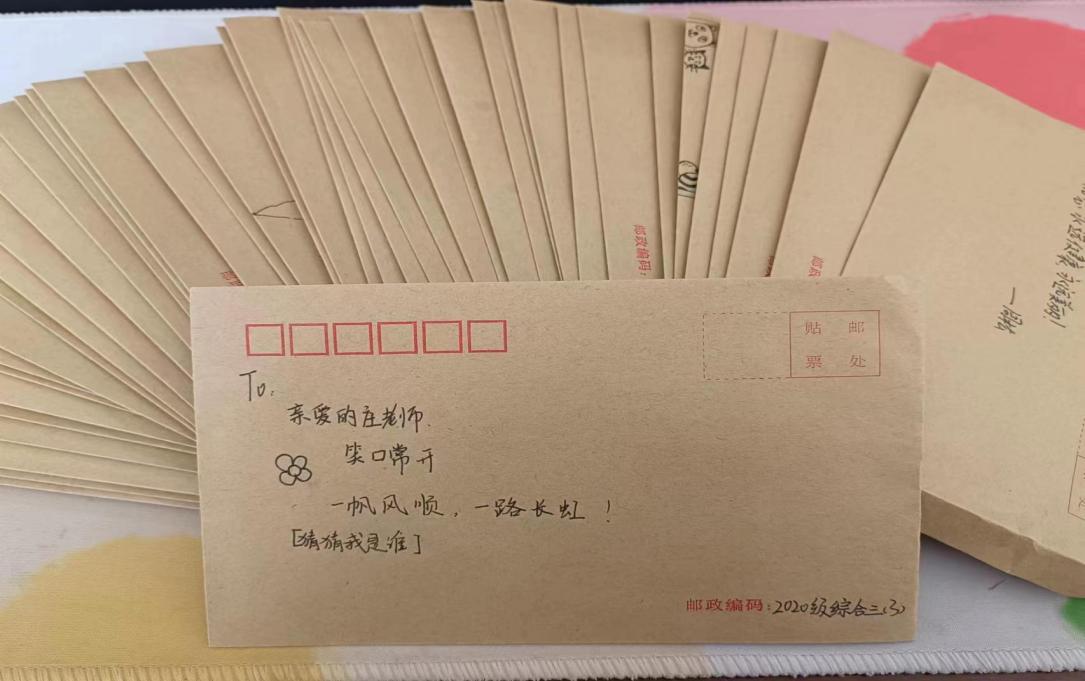 邮政编码:
邮政
一
贴 邮
票 处
To:
亲爱的庄老师.
笑口常开
一帆风顺，一路长虹！
[猜猜我是谁]
邮政编码:2020级综合三(3)